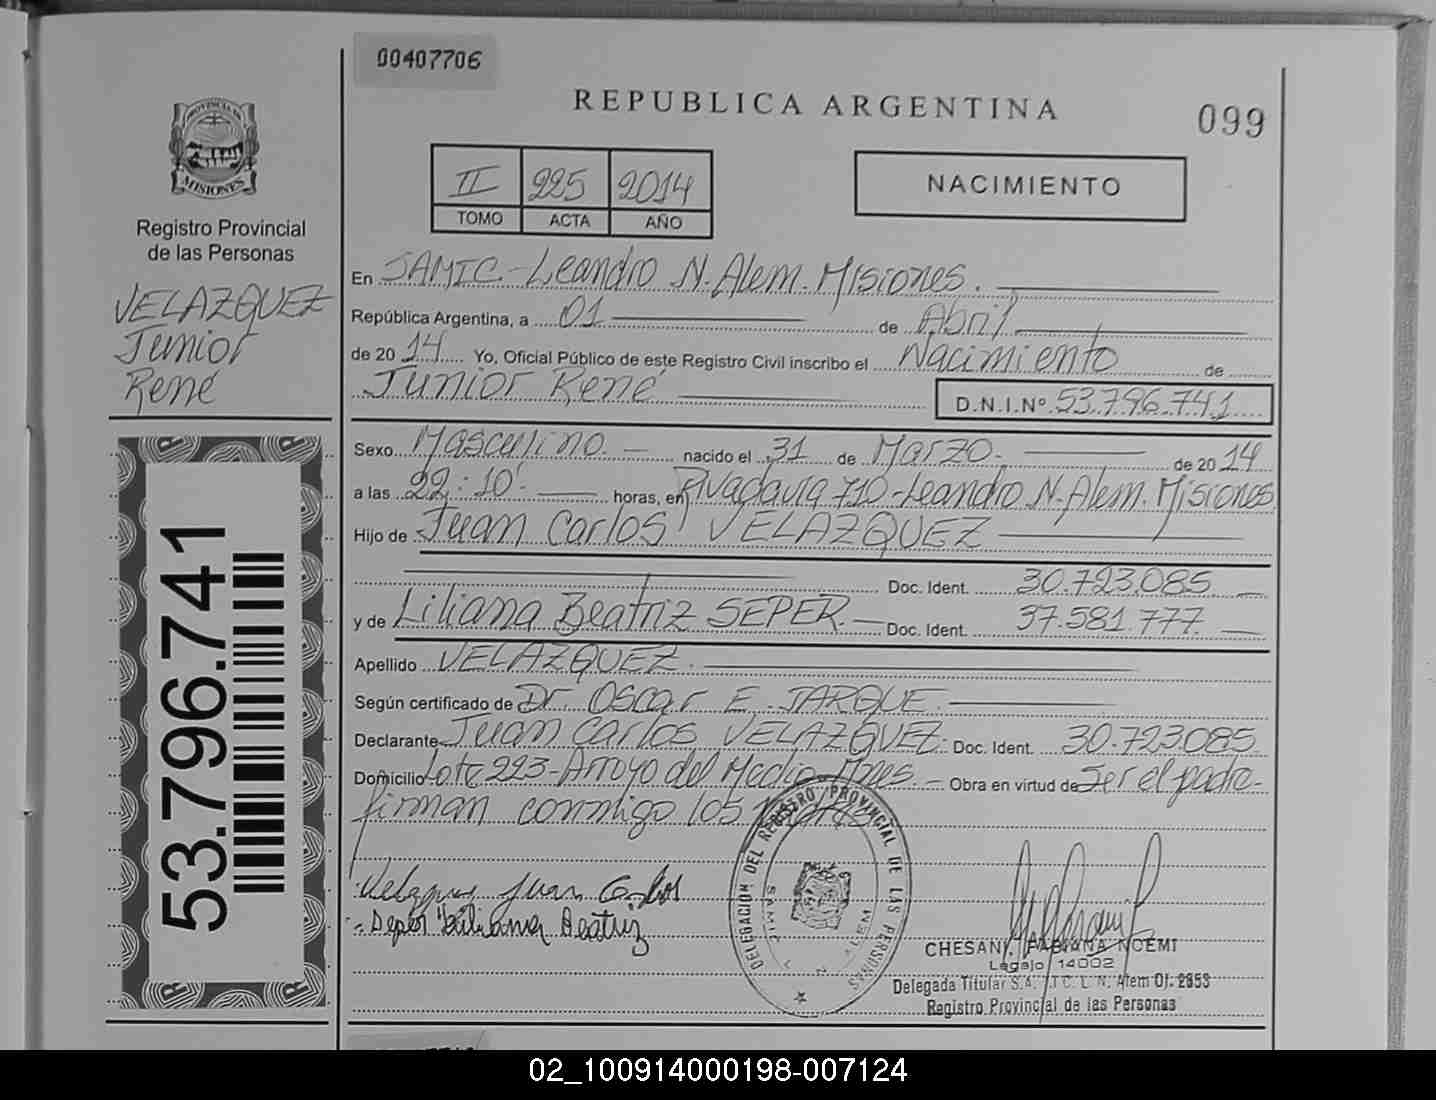 00407706
REPUBLICA ARGENTINA
099
PROVINCIA DE MISIONES
II 225 2014
TOMO ACTA AÑO
NACIMIENTO
Registro Provincial
de las Personas
VELAZQUEZ
Junior
René
En SAMIC - Leandro N. Alem. Misiones.
República Argentina, a 01 de Abril
de 20 14 Yo, Oficial Público de este Registro Civil inscribo el Nacimiento de
Junior René
D.N.I.Nº 53.796.741
Sexo Masculino. nacido el 31 de Marzo. de 20 14
a las 22:10' horas, en Rivadavia 710 - Leandro N. Alem. Misiones
Hijo de Juan Carlos VELAZQUEZ
Doc. Ident. 30.723.085.
y de Liliana Beatriz SEPER. Doc. Ident. 37.581.777.
Apellido VELAZQUEZ.
Según certificado de Dr. Oscar E. JARQUE.
Declarante Juan Carlos VELAZQUEZ. Doc. Ident. 30.723.085
Domicilio Lote 223 - Arroyo del Medio - Mnes. - Obra en virtud de Ser el padre-
firman conmigo los
Velazquez Juan Carlos
Seper Liliana Beatriz
DELEGACION DEL REGISTRO PROVINCIAL DE LAS PERSONAS
SAMIC L N ALEM
CHESANI, FABIANA NOEMI
Legajo 14002
Delegada Titular S.A. .I C. L. N. Alem Of. 2853
Registro Provincial de las Personas
53.796.741
02_100914000198-007124